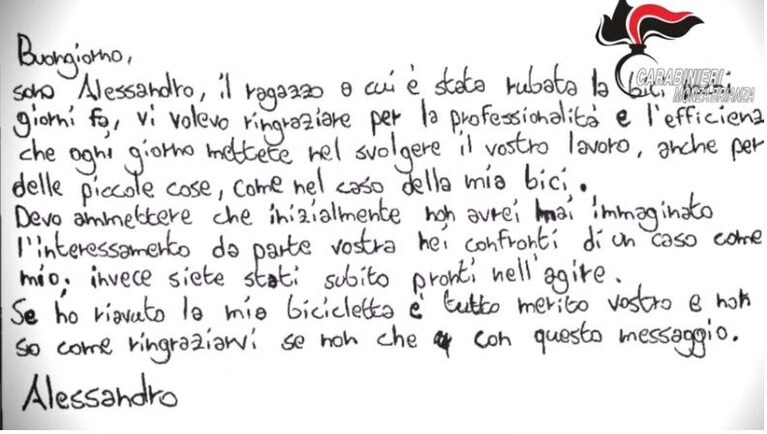 CARABINIERI
MONZA BRIANZA
Buongiorno,
sono Alessandro, il ragazzo a cui è stata rubata la bici
giorni fa, vi volevo ringraziare per la professionalità e
che ogni giorno mettete nel svolgere il vostro lavoro, anche per
delle piccole cose, come nel caso della mia bici.
Devo ammettere che inizialmente non avrei mai immaginato
l'interessamento da parte vostra nei confronti di un caso come
mio; invece siete stati subito pronti nell'agire.
Se ho riavuto la mia bicicletta è tutto merito vostro e non
so come ringraziarvi se non che con questo messaggio.
Alessandro